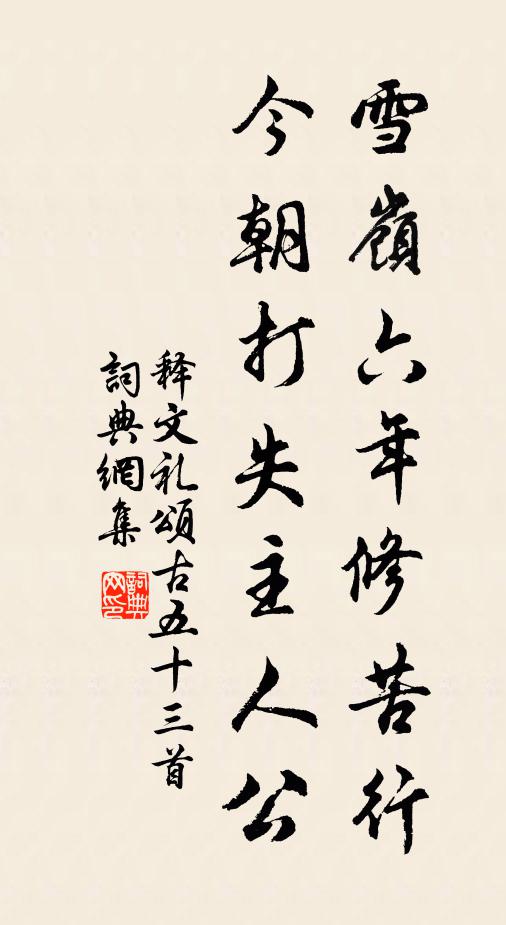 雪嶺六年修苦行
今朝打失主人公
释文礼頌古五十三首
詞典網集
詞典
网印